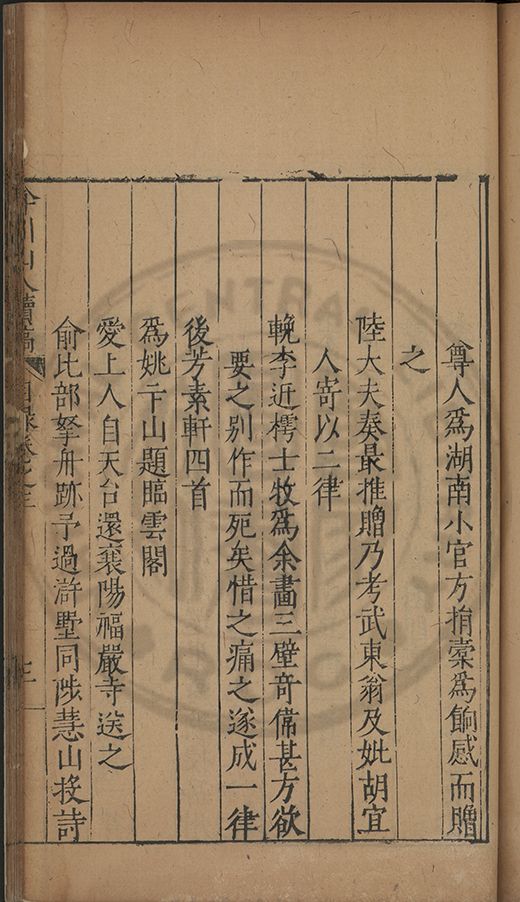 尊人爲湖南小官方捐橐爲餉感而贈
之
陸大夫奏最推贈乃考武東翁及妣胡宜
人寄以二律
輓李近樗士牧爲余畫三壁奇偹甚方欲
要之别作而死矣惜之痛之遂成一律
後芳素軒四首
爲姚于山題臨雲閣
愛上人自天台還襄陽福嚴寺送之
俞比部拏舟跡予過滸墅同陟慧山投詩
山人續稿 目錄卷之三